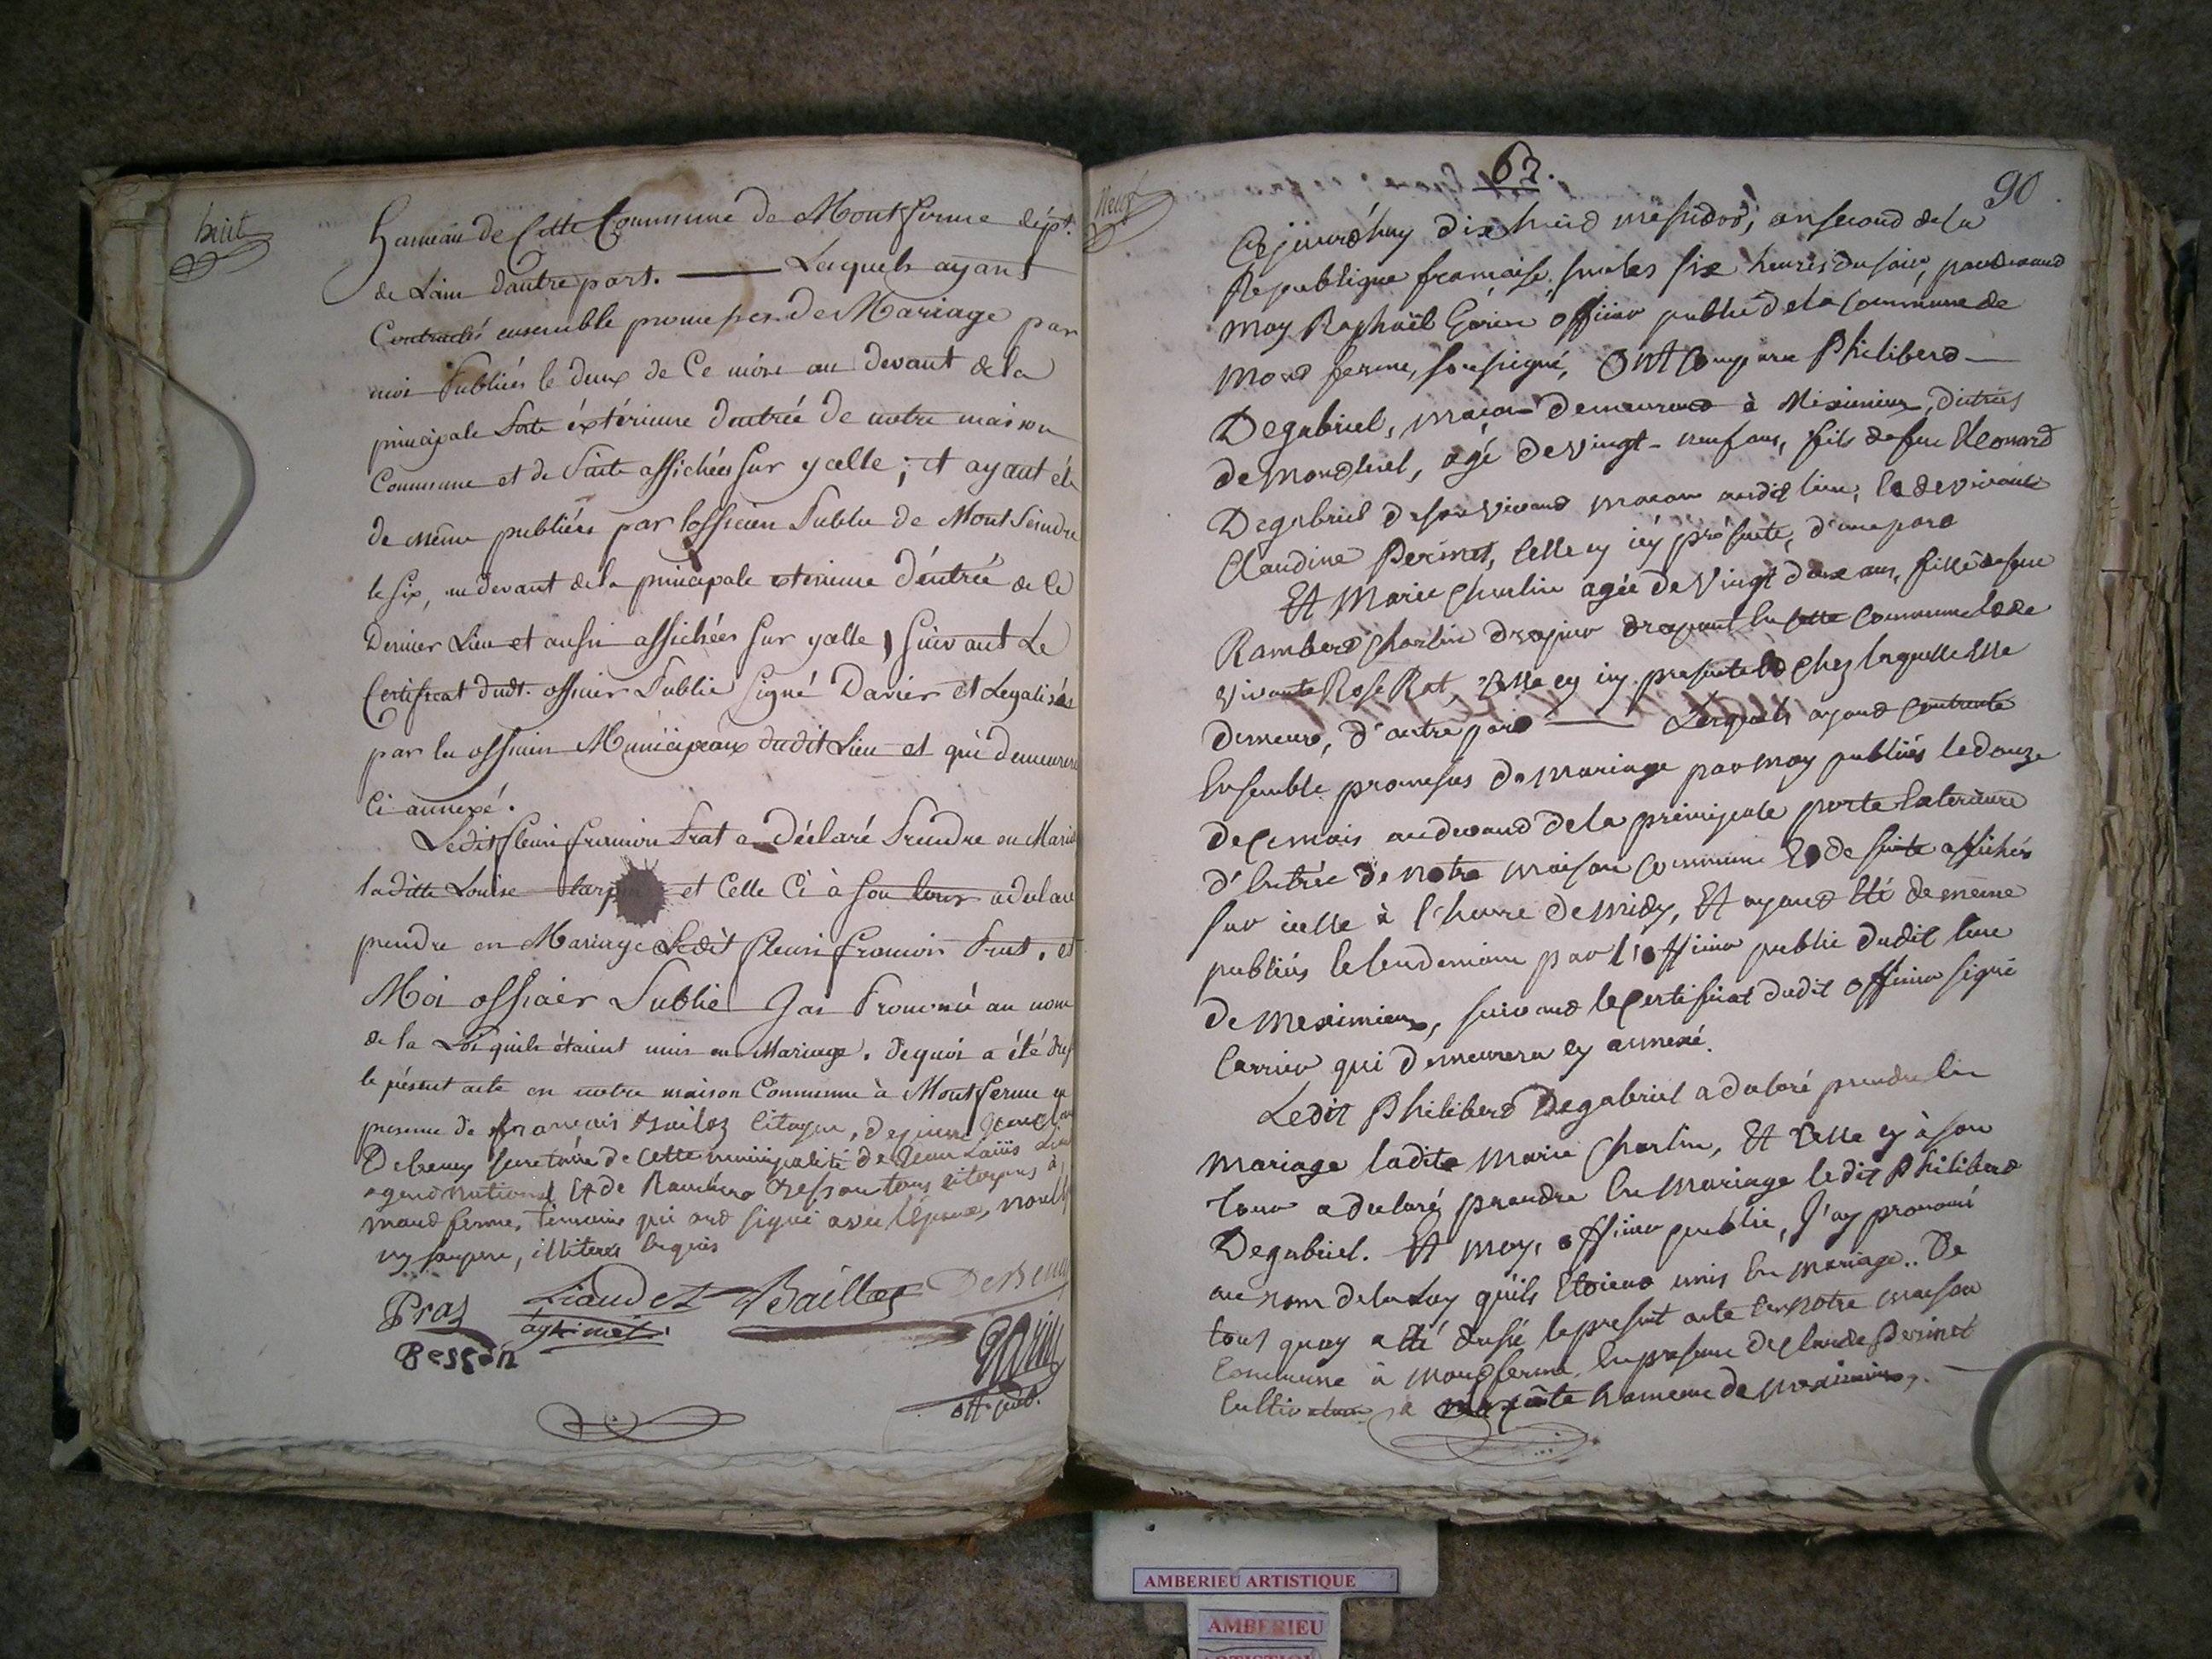 huit
hameau de Cette Commune de Montferme dépt.
de Lain dautre part. — Lesquels ayant
Contractés ensemble promesses de Mariage par
moi Publiées le deux de Ce mois au devant de la
principale Porte éxtérieure dentrée de notre maison
Commune et de Suite affichées Sur ycelle ; et ayant été
de même publiées par lofficier Public de
le six, au devant de la principale exterieure déntrée de Ce
Dernier Lieu et aussi affichées Sur ycelle, Suivant Le
Certificat dudt. officier Public Signé Davier et Legalisées
par les officiers Municipeaux dudit Lieu et qui demeurera
Ci annexé.
Ledit fleuri françois Prat a Déclaré Prendre en
laditte Louise et Celle Ci à Son tour a declaré
prendre en Mariage Ledit fleuri françois Prat. et
Moi officier Public Jai Prononcé au nom
de la Loi quils étaient unis en Mariage. dequoi a été
le présent acte en notre maison Commune à Montferme en
presence de françois Baillos Citoyen, de pierre
Debeney secretaire de cette municipalité de Jean Louis
agend national Et de Rambero Besson tous citoyens à
mond ferme, temoins qui ond signé avec l'Epoux, non
illiteres
Pras Liaudet Baillos Debeney
agt. nat.
Besson Gorin
off. pub.
Neuf
67.
90
Cejourdhuy dix huid messidor, an second de la
Republique francaise, sur les six heures du soir, pardevand
moy Raphaël Gorin officier public de la Commune de
mond ferme, soussigné, Ont Comparu Philiberd —
Degabriel, maçon demeurand à Meximieux, district
de mondluel, agé de vingt-neuf ans, fils de feu Leonard
Degabriel de son vivand maçon audit lieu, et de vivante
Claudine Perinet, Celle cy icy présente, d'une pard
Et Marie Charlin agée de vingt deux ans, fille de feu
Ramberd Charlin drapier drapant en cette Commune Et de
vivante Rose Rat, Celle cy icy presente Et chez laquelle Elle
demeure, d'autre pard — Lesquels ayand Contracté
Ensemble promesses de mariage par moy publiées le douze
de Ce mois au devand de la prinsipale porte Exterieure
d'Entrée de notre maison Commune Et de suite affichées
sur icelle à l'heure de midy, Et ayand Eté de même
publiées le lendemain par l'officier public dudit lieu
de meximieux, suivand le Certificat dudit officier signé
Carrier qui demeurera Cy annexé.
Ledit Philiberd Degabriel a declaré prendre En
mariage ladite Marie Charlin, Et Celle cy à son
tour a declaré prendre En Mariage ledit Philiberd
Degabriel. Et moy, officier public, J'ay prononcé
au nom de la Loy qu'ils Etoiend unis En mariage. De
tout quoy a Eté dressé le present acte En notre maison
Commune à mondferme, En presence de Claude Perinet
Cultivateur, à hameau de meximieux, —
AMBERIEU ARTISTIQUE
AMBERIEU
ARTISTIQUE